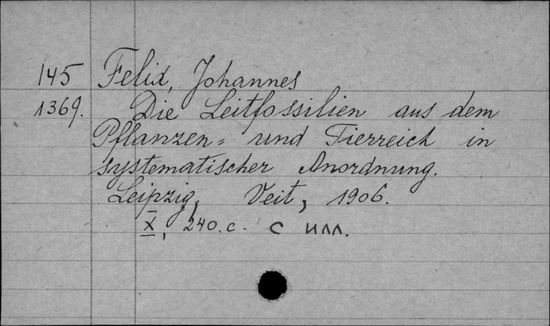 145 Felix, Johannes
1369. Die Leitfossilien aus dem
Pflanzen- und Tierreich in
systematischer Anordnung.
Leipzig, Veit, 1906.
X, 240.с. с илл.